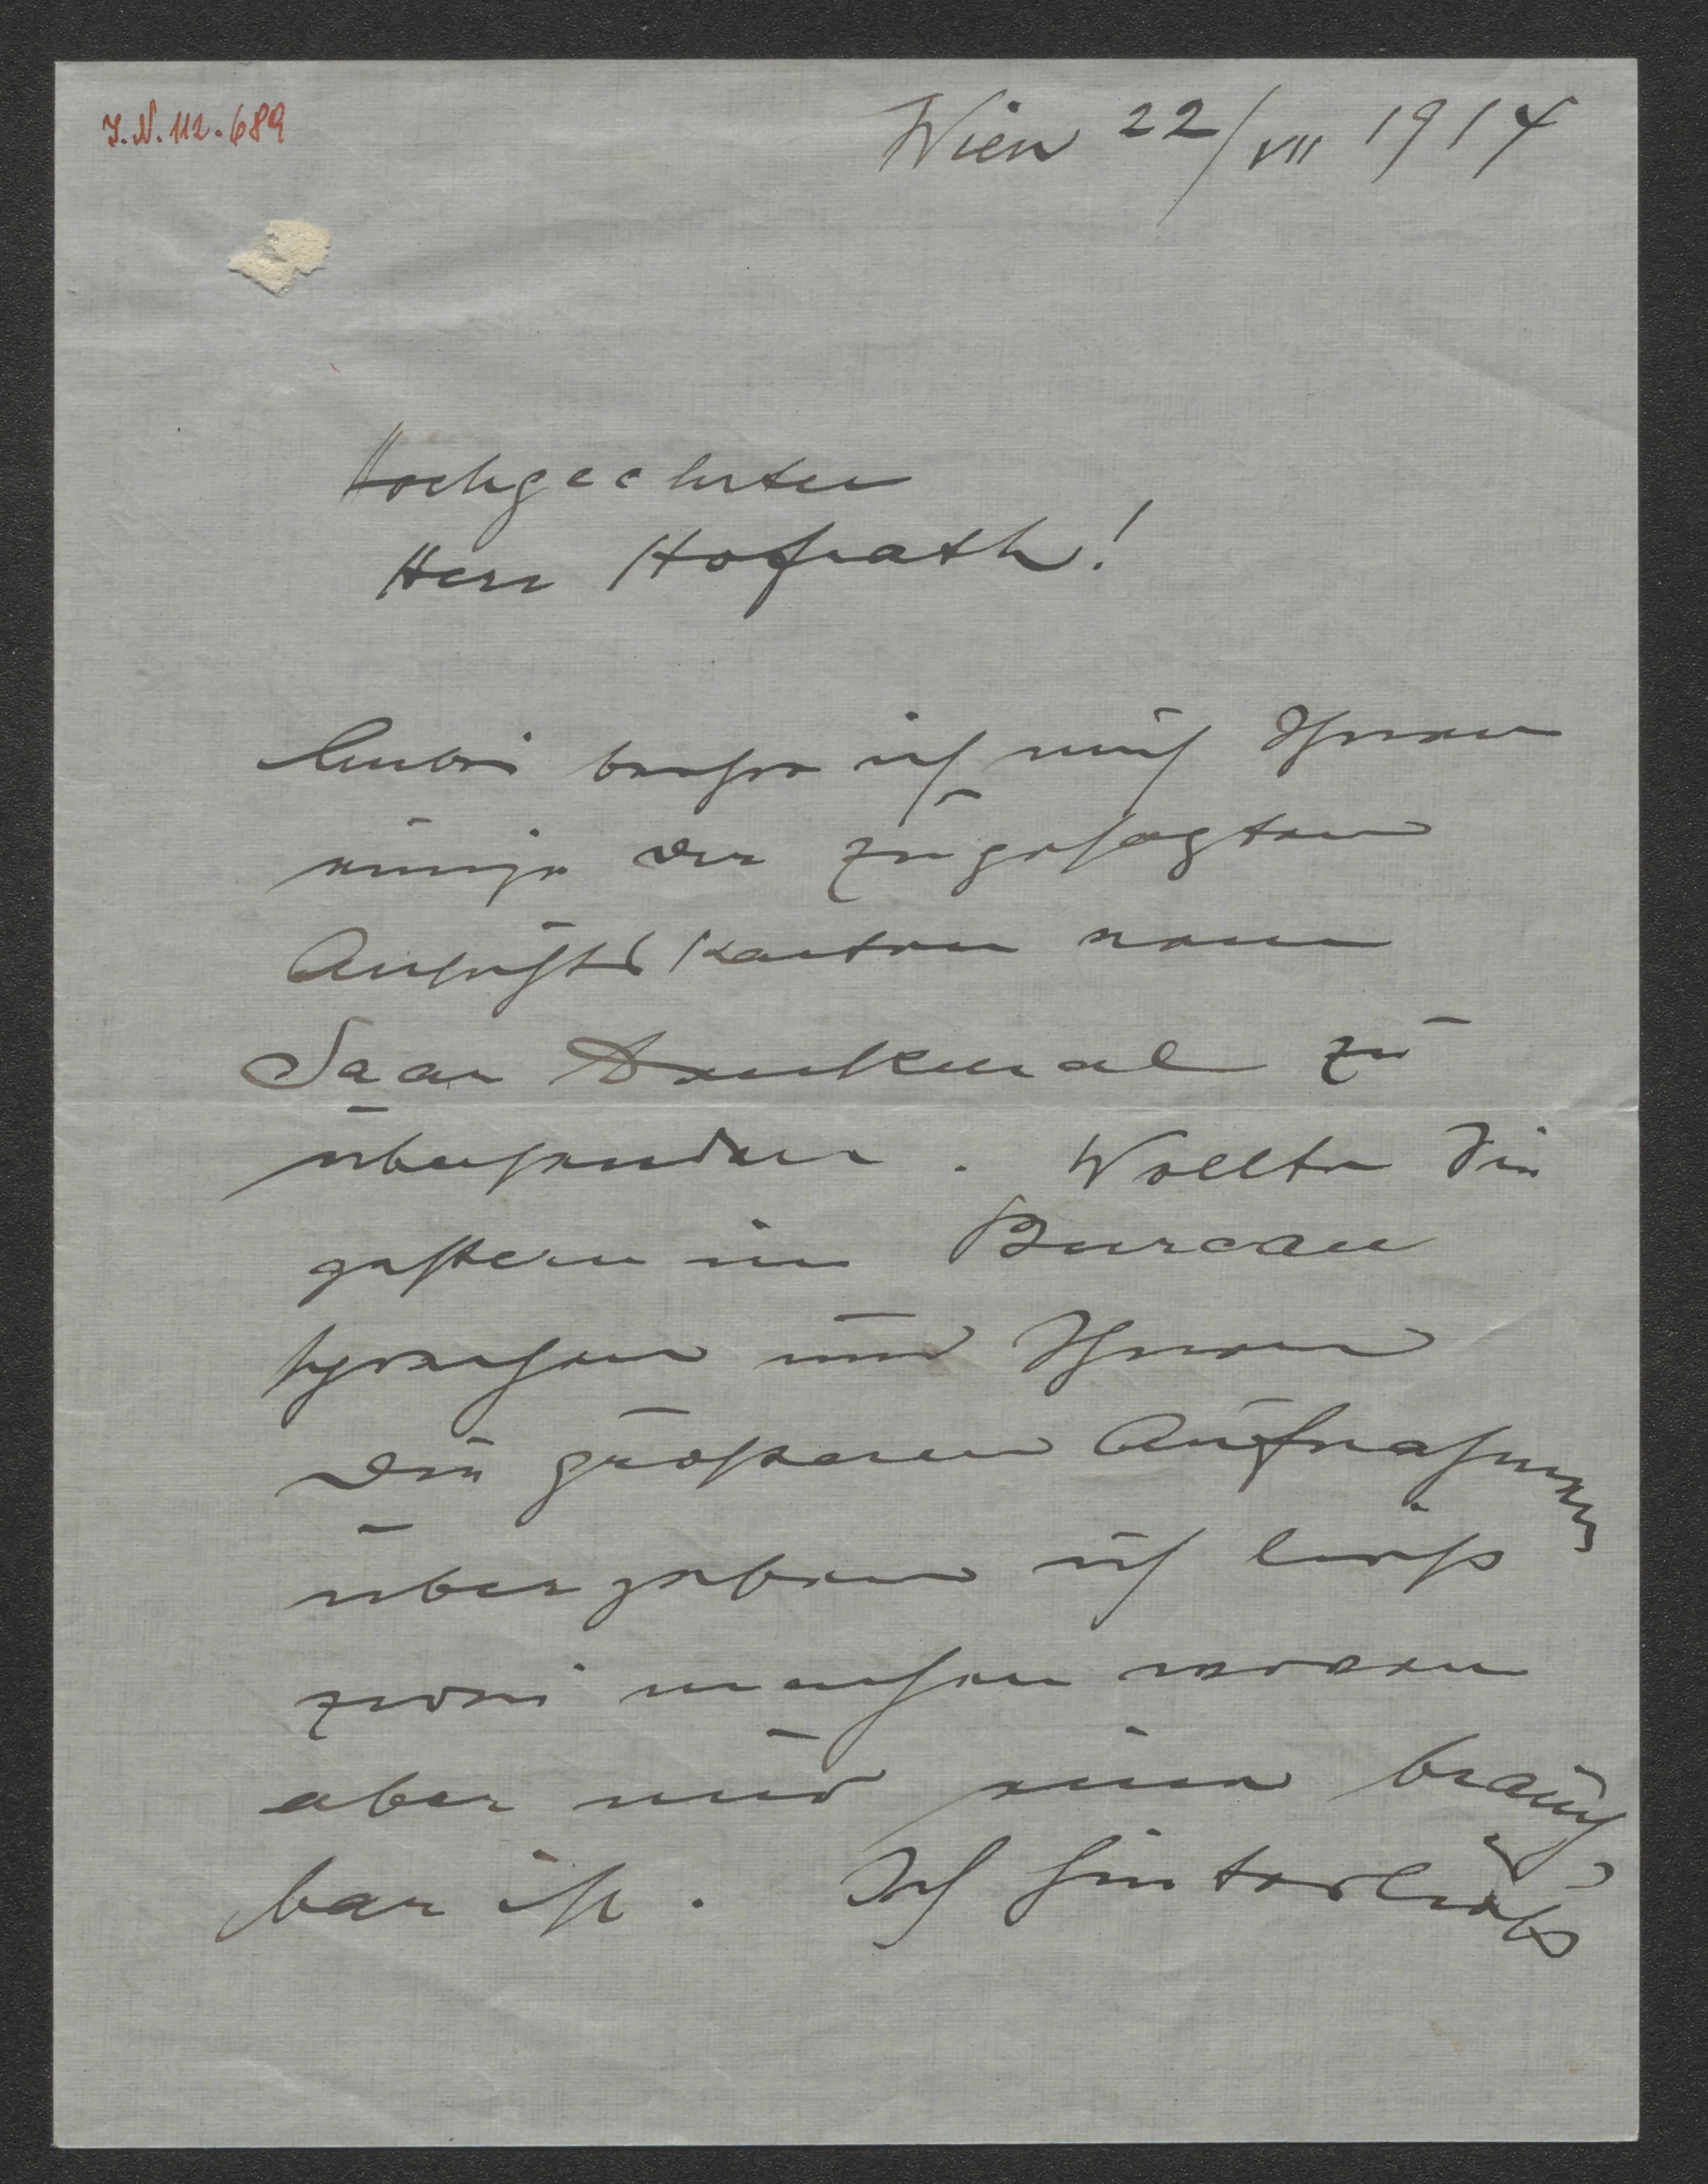 J.N. 112.689
Wien 22/VII 1914
Hochgeehrter
Herr Hofrath!
Anbei beehre ich mich Ihnen
einige der zugesagten
Ansichtskarten vom
Saar Denkmal zu
übersenden. Wollte Sie
gestern im Bureau
sprechen und Ihnen
die grösseren Aufnahmen
übergeben ich liess
zwei machen wovon
aber nur eine brauch
bar ist. Ich hinterliess